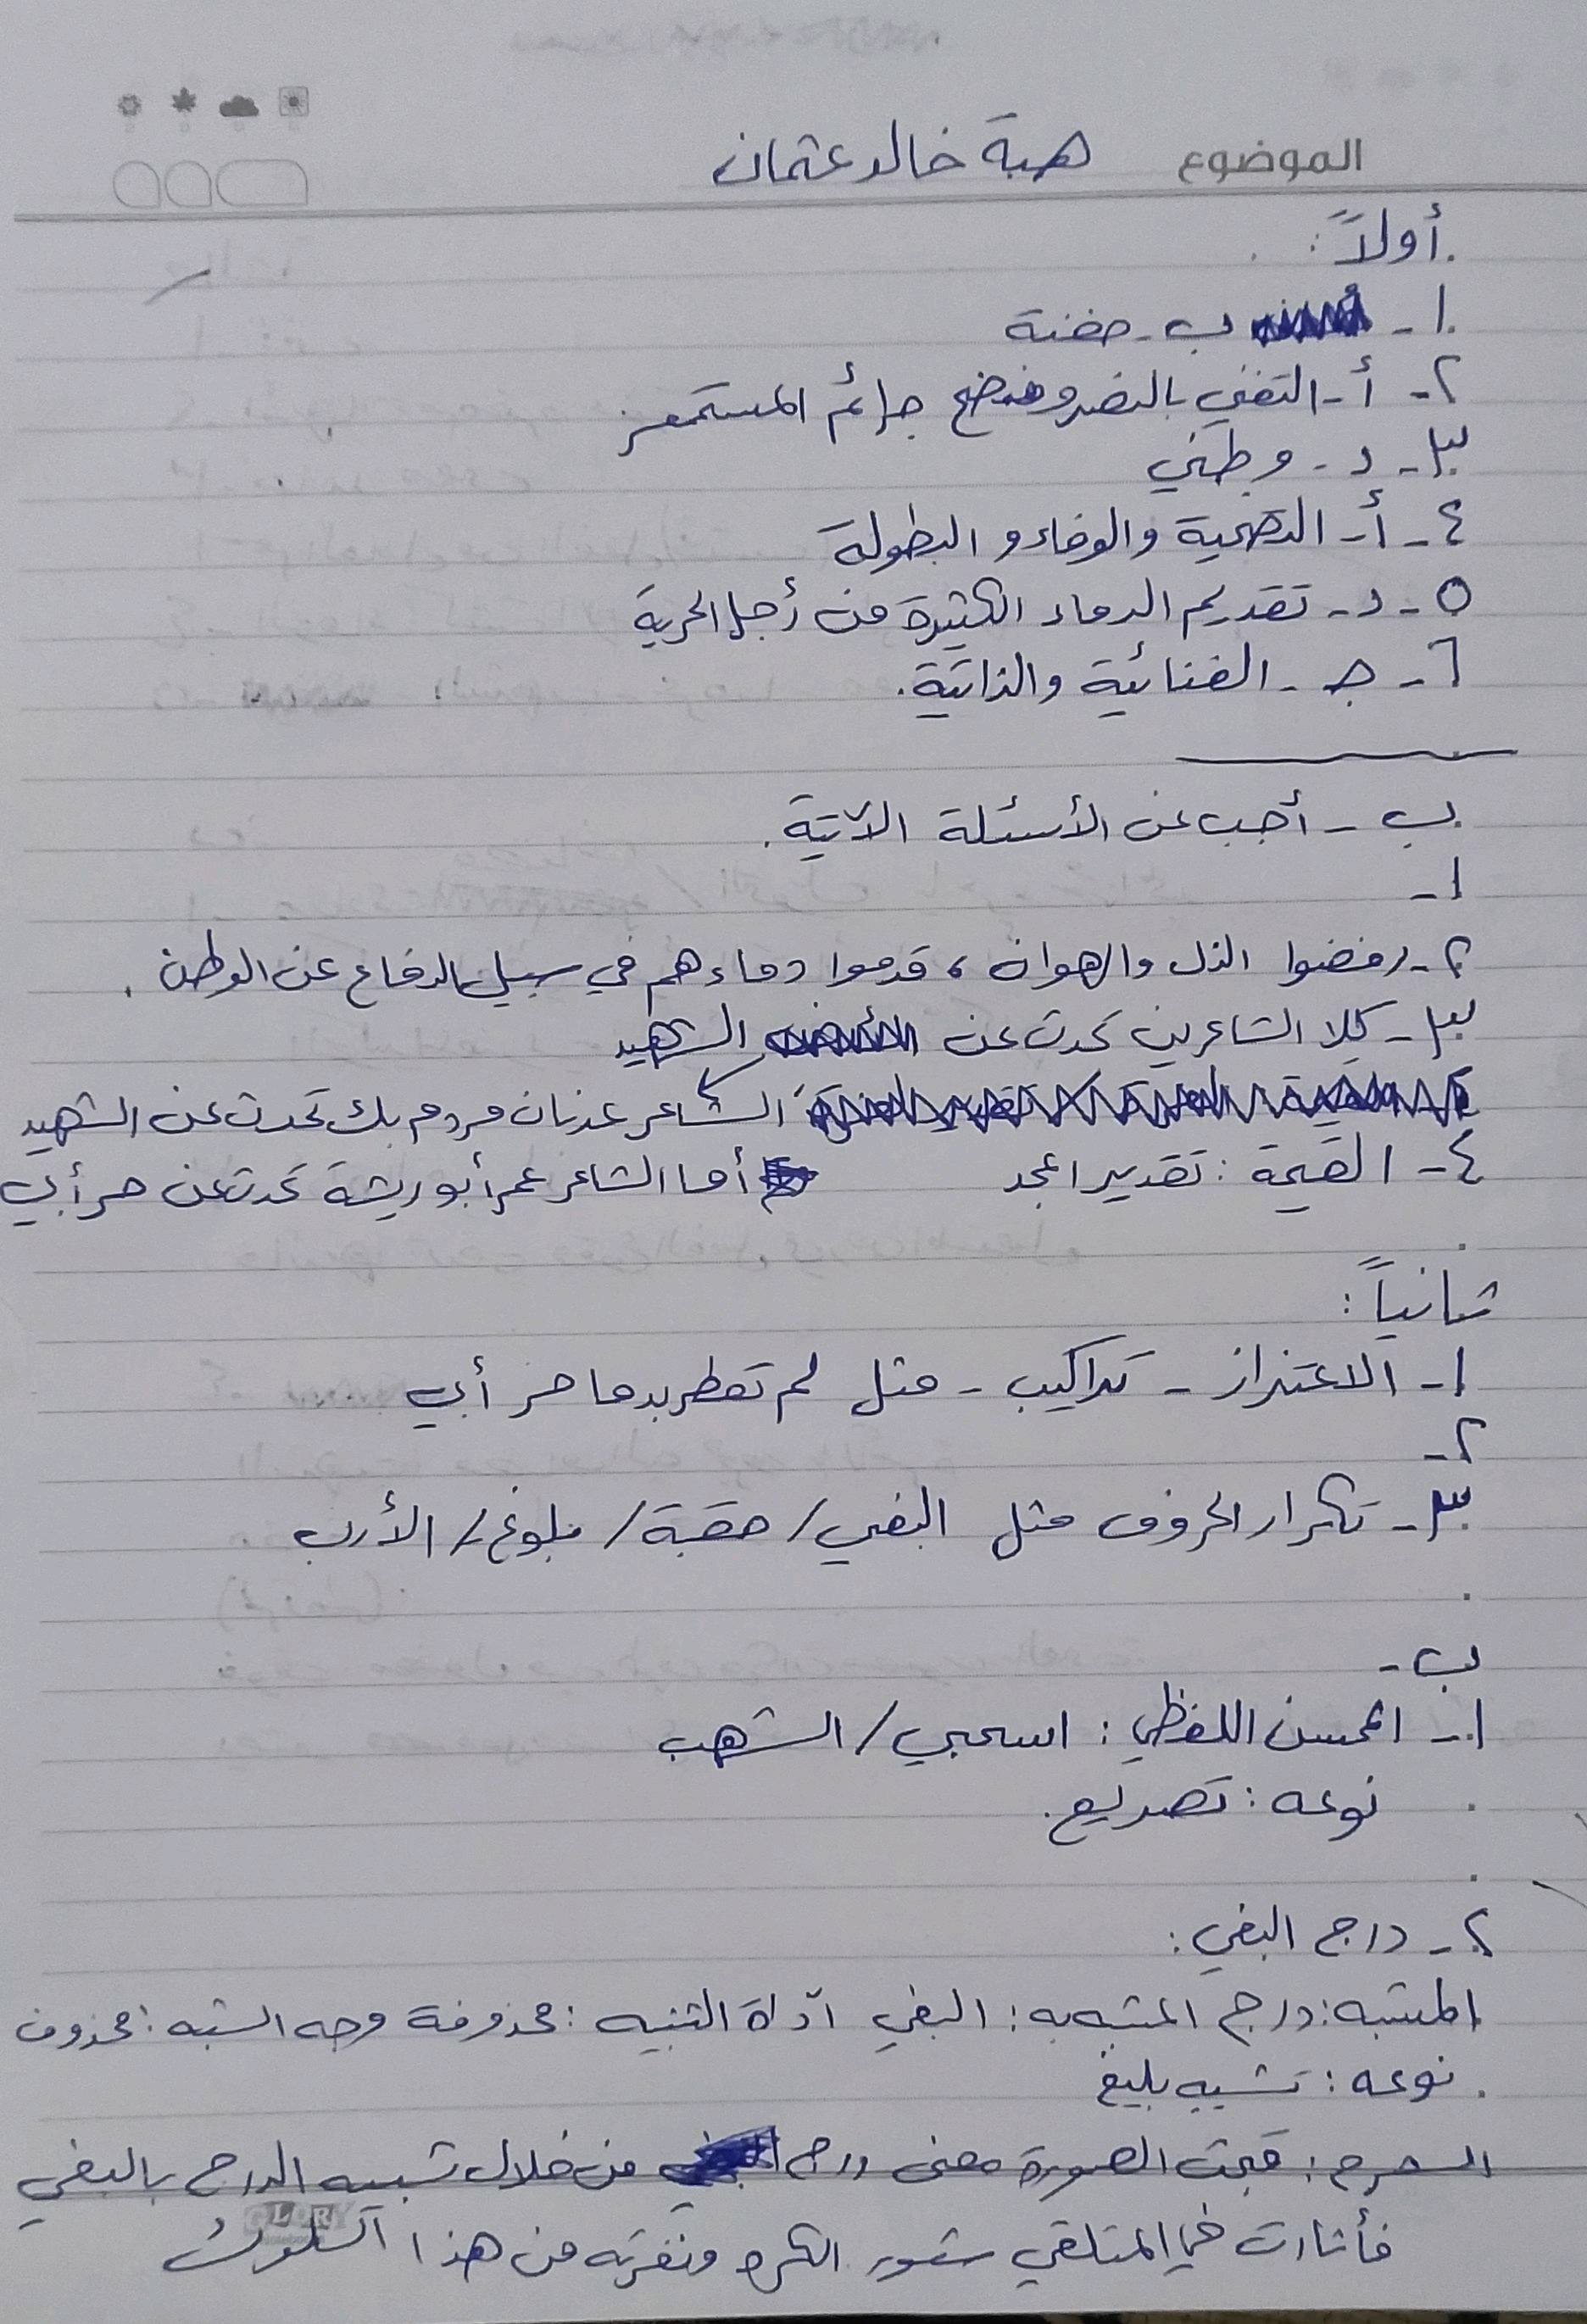 الموضوع هبة خالد عثمان
أولاً:
١- ب - حفنة
٢- أ - التغني بالنصر وفضح جرائم المستعمر
٣- د - وطني
٤- أ - التضحية والوفاء والبطولة
٥- د - تقديم الدماء الكثيرة من أجل الحرية
٦- جـ - الغنائية والذاتية.
ب - أجب عن الأسئلة الآتية.
١-
٢- رفضوا الذل والهوان، قدموا دماءهم في سبيل الدفاع عن الوطن.
٣- كلا الشاعرين تحدث عن الشهيد
الشاعر عدنان مردم بك تحدث عن الشهيد
٤- القيمة: تقدير المجد أما الشاعر عمر أبو ريشة تحدث عن حر أبي
ثانياً:
١- الاعتزاز - تراكيب - مثل لم تعطر بدما حر أبي
٢-
٣- تكرار الحروف مثل البغي/ حقبة/ بلوغ/ الأرب
ب -
١- المحسن اللفظي: اسحبي/ الشهب
نوعه: تصريع.
٢- درج البغي:
المشبه: درج المشبه به: البغي أداة التشبيه: محذوفة وجه الشبه: محذوف
نوعه: تشبيه بليغ
الشرح: قبحت الصورة معنى درج من خلال تشبيه الدرج بالبغي
GLORY
فأثارت في المتلقي شعور الكره ونفرته من هذا السلوك